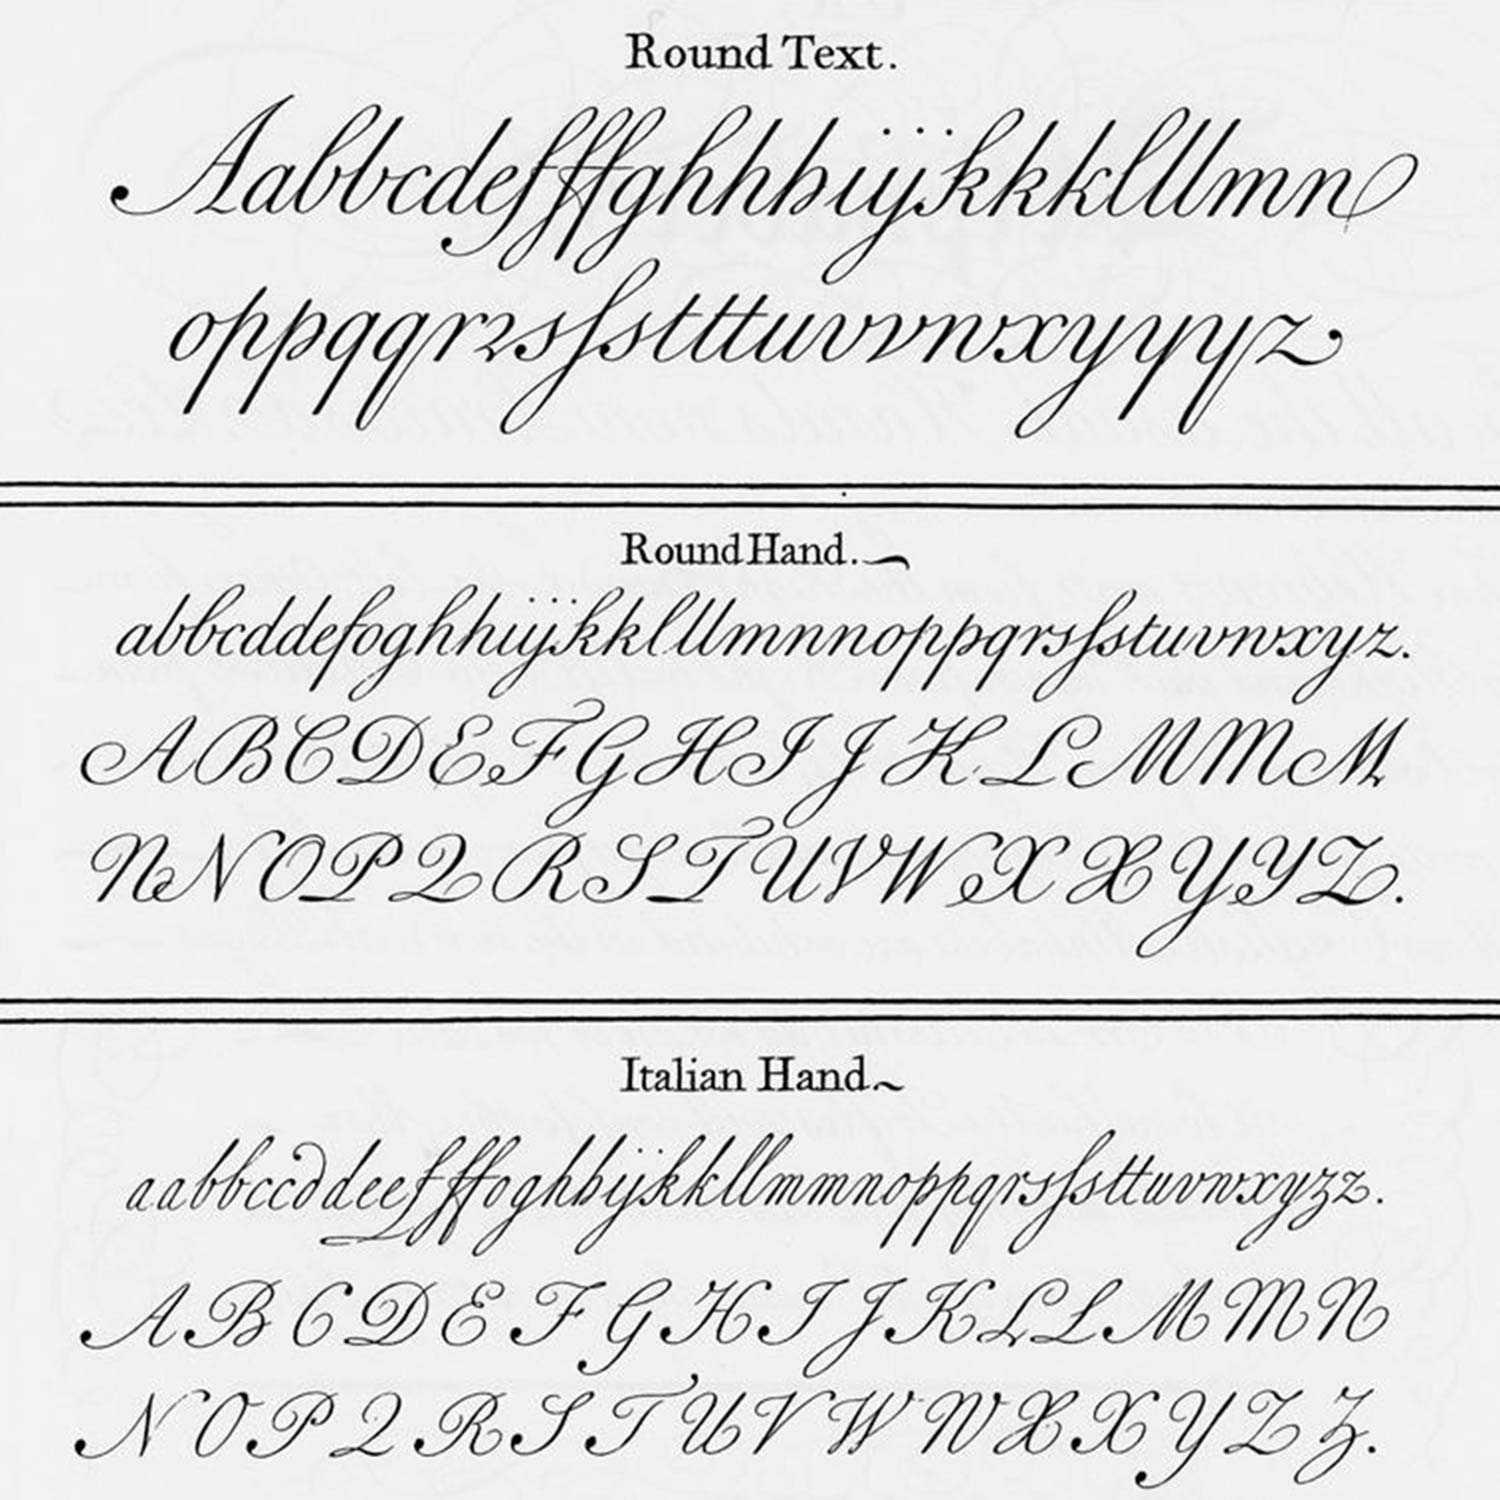 Round Text.
Aabbcdefffghhhijjkkklllmn
oppqqrrsſstttuvvwxyyyz
Round Hand.
abbcddefoghhijjkklllmnnoppqrsſstuvwxyz.
ABCDEFGHIJKLMMM
NNOPQRSTUVWXXYYZ.
Italian Hand.
aabbccddeefffoghhijkkllmmnoppqrsſsttuvwxyzz.
ABCDEFGHIJKLLMMN
NOPQRSTUVWWXXYZZ.